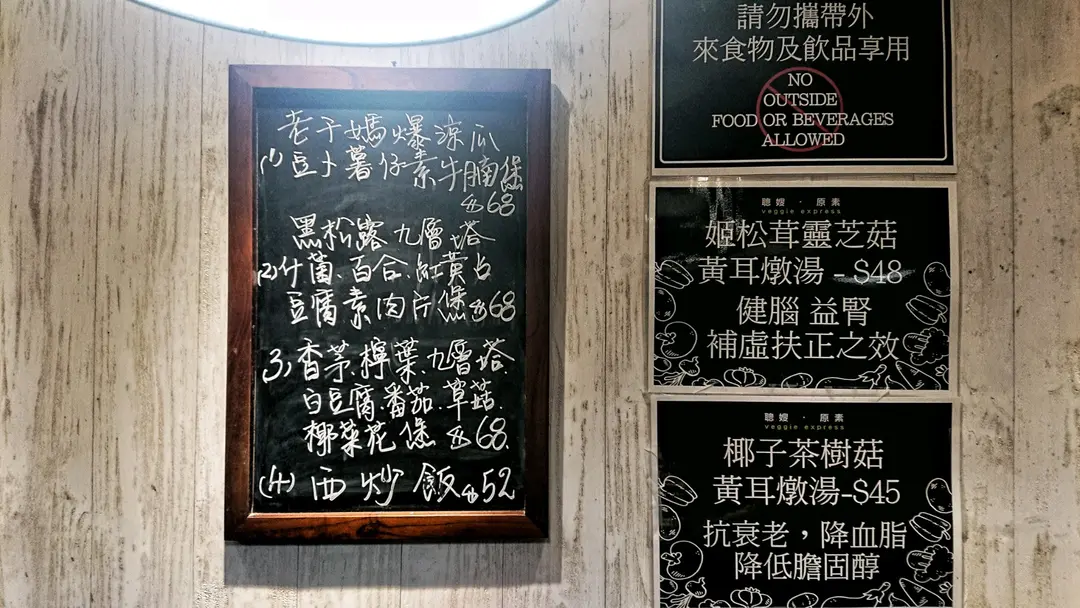 老干媽爆涼瓜
(1) 豆卜薯仔素牛腩煲
$68
黑松露九層塔
(2) 什菌.百合.紅黃占
豆腐素肉片煲$68
3) 香茅.檸葉.九層塔.
白豆腐.番茄.草菇.
椰菜花煲$68.
(4) 西炒飯$52
請勿攜帶外
來食物及飲品享用
NO
OUTSIDE
FOOD OR BEVERAGES
ALLOWED
聰嫂．原素
veggie express
姬松茸靈芝菇
黃耳燉湯-$48
健腦 益腎
補虛扶正之效
聰嫂．原素
veggie express
椰子茶樹菇
黃耳燉湯-$45
抗衰老，降血脂
降低膽固醇